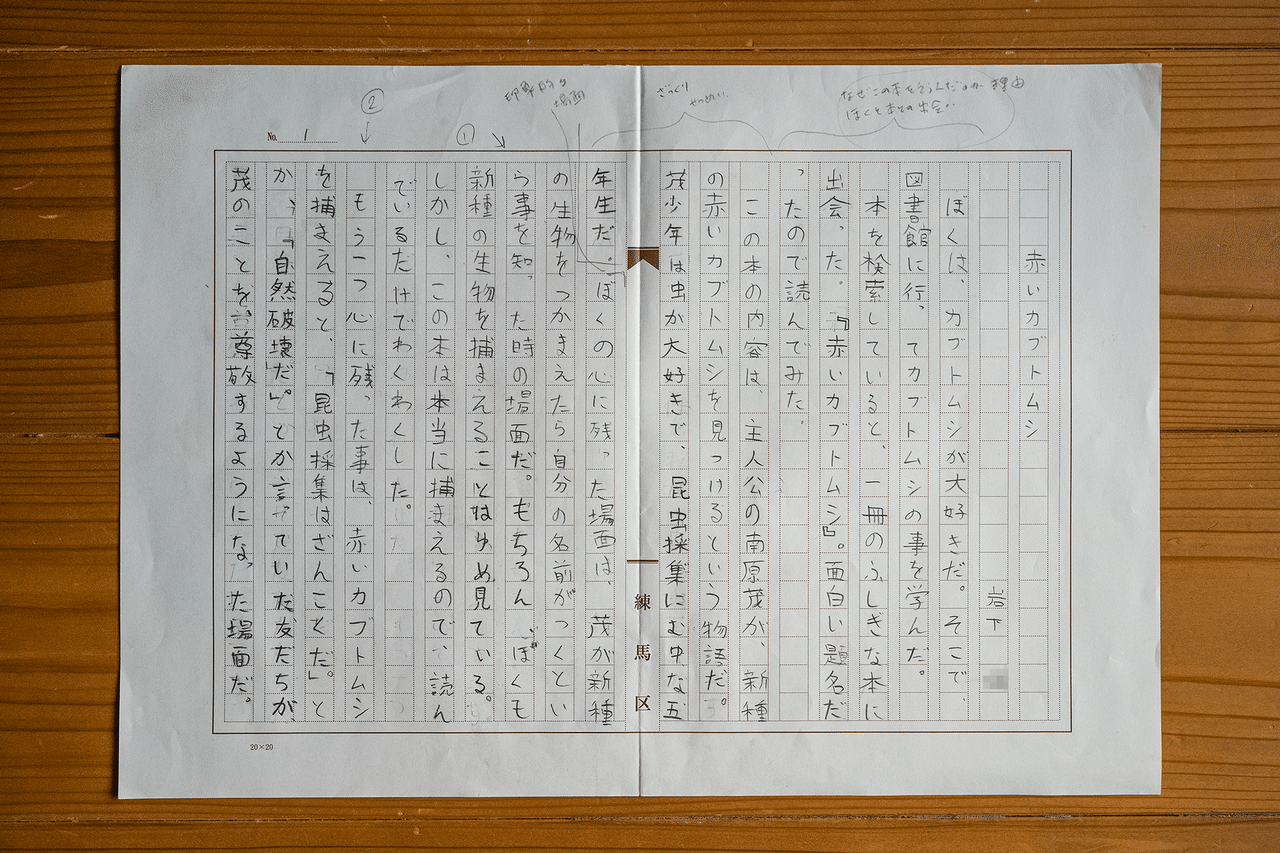 なぜこの本をえらんだのか 理由
ぼくと本との出会い
ざっくり
せつめい
印象的な
場面
①
②
No. 1
赤いカブトムシ
岩下
ぼくは、カブトムシが大好きだ。そこで、
図書館に行ってカブトムシの事を学んだ。
本を検索していると、一冊のふしぎな本に
出会った。『赤いカブトムシ』。面白い題名だ
ったので読んでみた。
この本の内容は、主人公の南原茂が、新種
の赤いカブトムシを見つけるという物語だ。
茂少年は虫が大好きで、昆虫採集にむ中な五
年生だ。ぼくの心に残った場面は、茂が新種
の生物をつかまえたら自分の名前がつくとい
う事を知った時の場面だ。もちろん、ぼくも
新種の生物を捕まえることはゆめ見ている。
しかし、この本は本当に捕まえるので、読ん
でいるだけでわくわくした。
もう一つ心に残った事は、赤いカブトムシ
を捕まえると、「昆虫採集はざんこくだ」。と
か、「自然破壊だ」。とか言っていた友だちが、
茂のことを尊敬するようになった場面だ。
練馬区
20×20